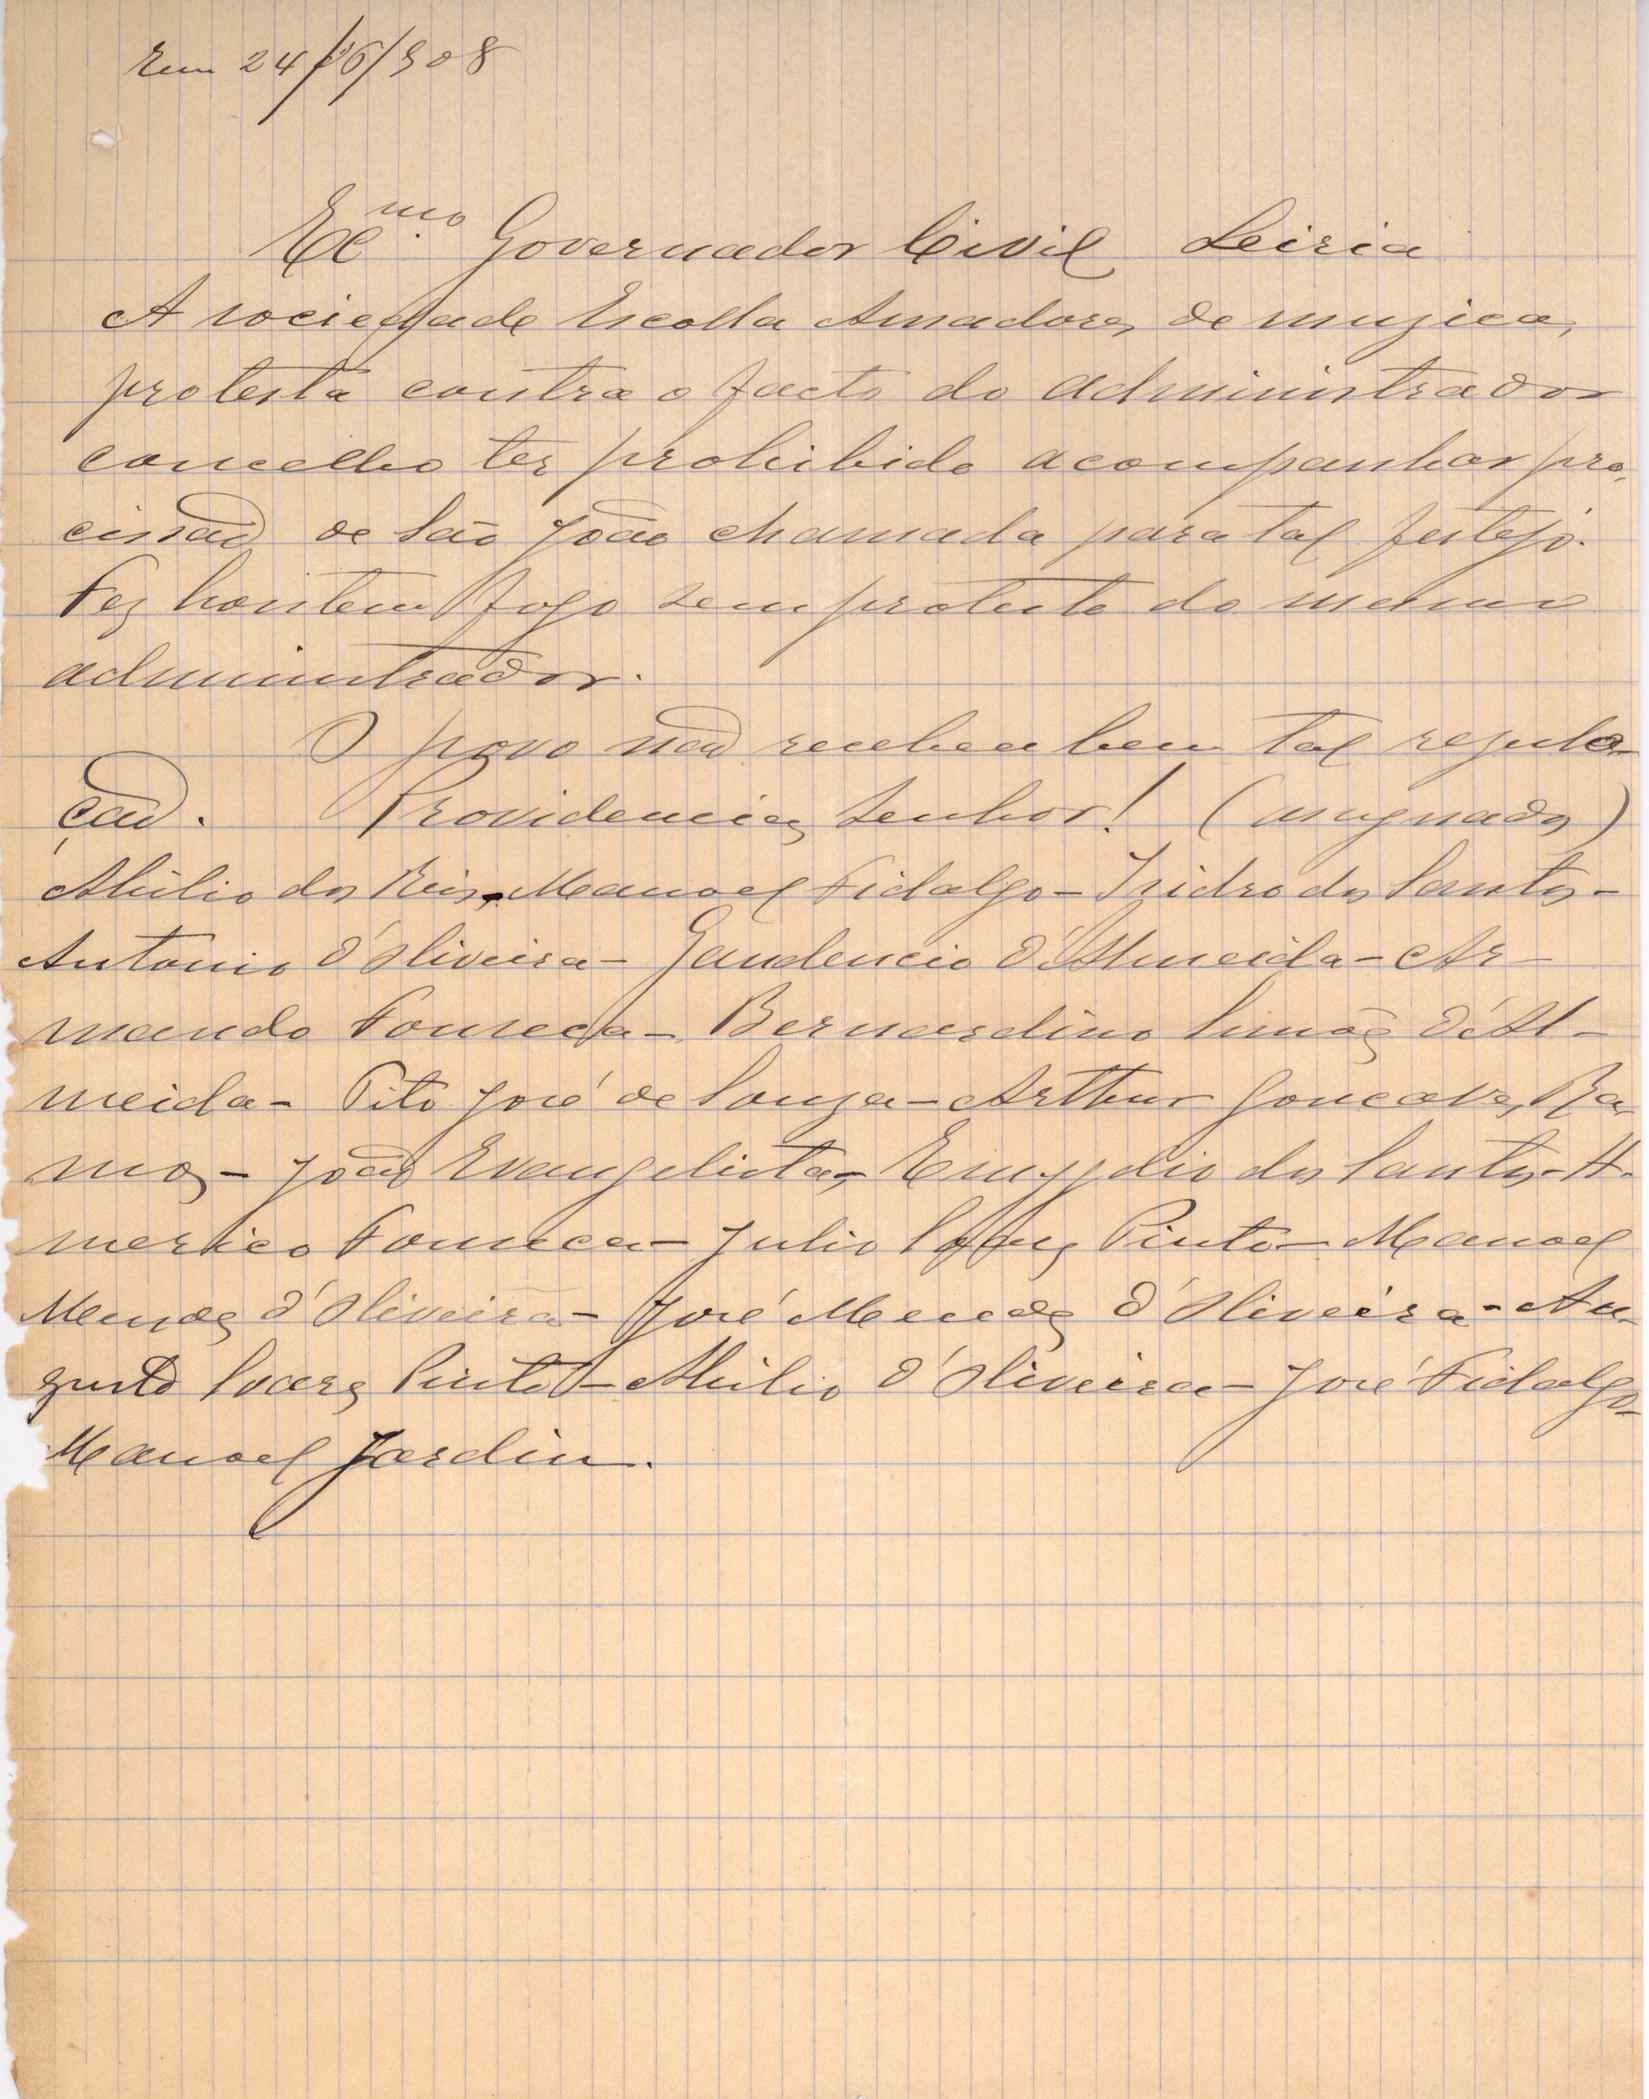 Em 24/6/908
Exmo Governador Civil Leiria
A sociedade Escolla Amadores de muzica,
protesta contra o facto do administrador
concelho ter prohibido acompanhar pro-
cissão de São João chamada para tal festejo.
Fez hontem fogo sem protesto do mesmo
administrador.
O povo não recebeu bem tal regula-
ção. Providencias Senhor! (assignados)
Abilio dos Reis - Manoel Fidalgo - Izidro dos Santos -
Antonio d'Oliveira - Gaudencio d'Almeida - Ar-
mando Fonseca - Bernardino Simões d'Al-
meida - Tito José de Souza - Arthur Goncalves Ra-
mos - João Evangelista - Emygdio dos Santos - A-
merico Fonseca - Julio Pinto - Manoel
Mendes d'Oliveira - José Mendes d'Oliveira - Au-
gusto Soares Pinto - Abilio d'Oliveira - José Fidalgo -
Manoel Jardim.